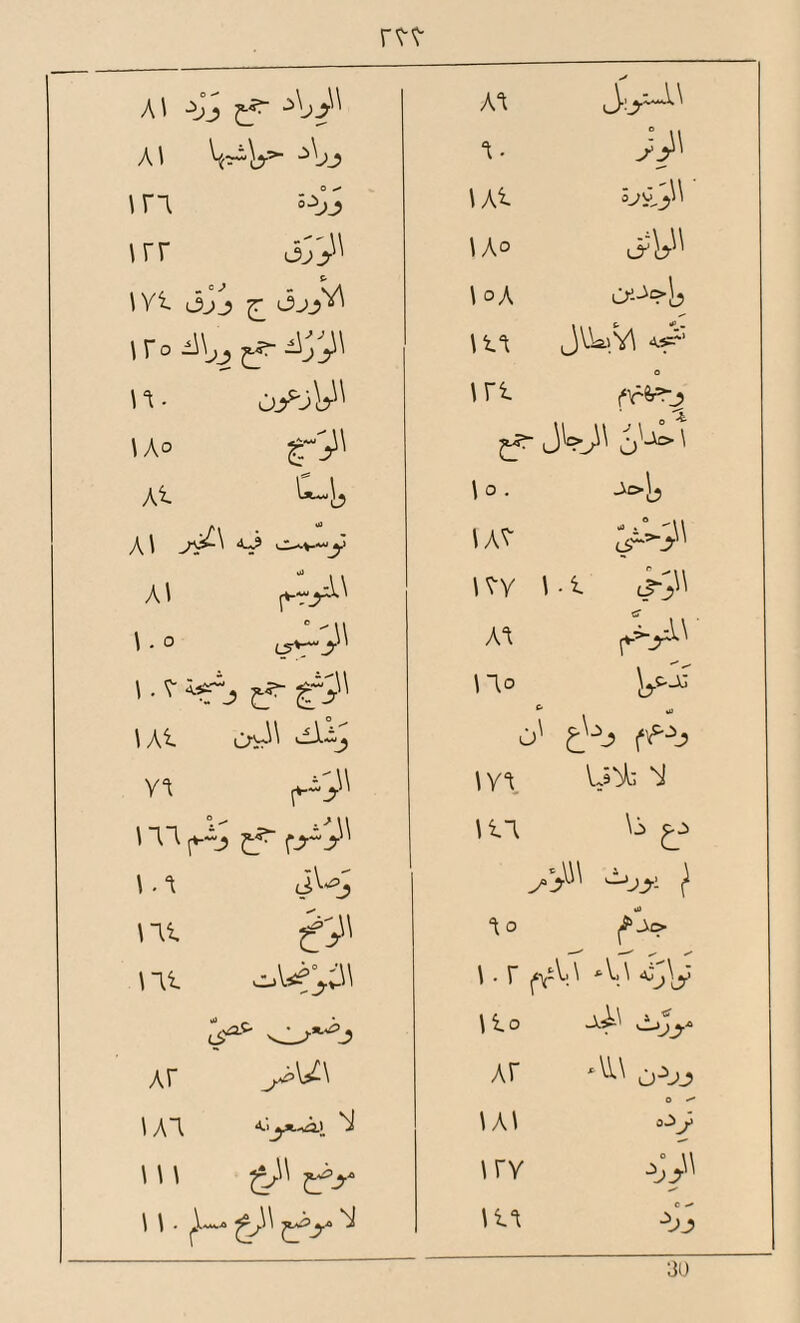 ٢٣٣
المستوبل ٨٩
الوتر ٩٠
الوتيرة ١٨٤
الواثق ١٨٥
واجدين ١٥٨
وجه الابطال ١٤٩
وجههم ١٢٤
احدان الرجال جمع
واحد ١٥٠
الوحشيّ ١٨٣
الوحي ١٠٤ ١٣٧
المتوخّم ٨٩
تدعوا ١٦٥
ودعهم وداع ان
لا تلاقيا ١٧٩
دع ذا ١٤٦
لم يورث اللؤم
جدهم ٩٥
توارثه آباء آبائهم ١٠٢
مورّث المجد ١٤٥
وردن الماء ٨٢
ترده ١٨١
الورد ١٢٧
ورد ١٤٩
الوراد جمع ورد ٨١
وراد حواشيها ٨١
وردة ١٢٦
الورق ١٢٢
الاورق ج ورق ١٧٤
الورك جمع وراك ١٢٥
الوازعون ١٩٠
الوسع ١٨٥
واسعا ٨٤
توسمت فيه الخير ٨١
المتوسم ٨١
الوسمي ١٠٥
الوشيع جمع وشيعة ١٠٣
وشك البين ١٨٤
الوشم ٧٩
الوشوم جمع وشم ١٦٦
وصالي ١٠٩
الوضح ١٦٤
المتوضحات ١٦٤
وضعت عصيّ
الحاضر ٨٢
لا يضعونه ١٨٦
موضع ١١١
لا موضع ١١٠
30